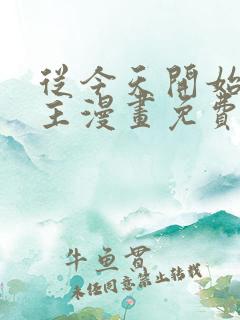 從今天開始
王漫畫免費
牛魚貫
未經同意禁止轉載